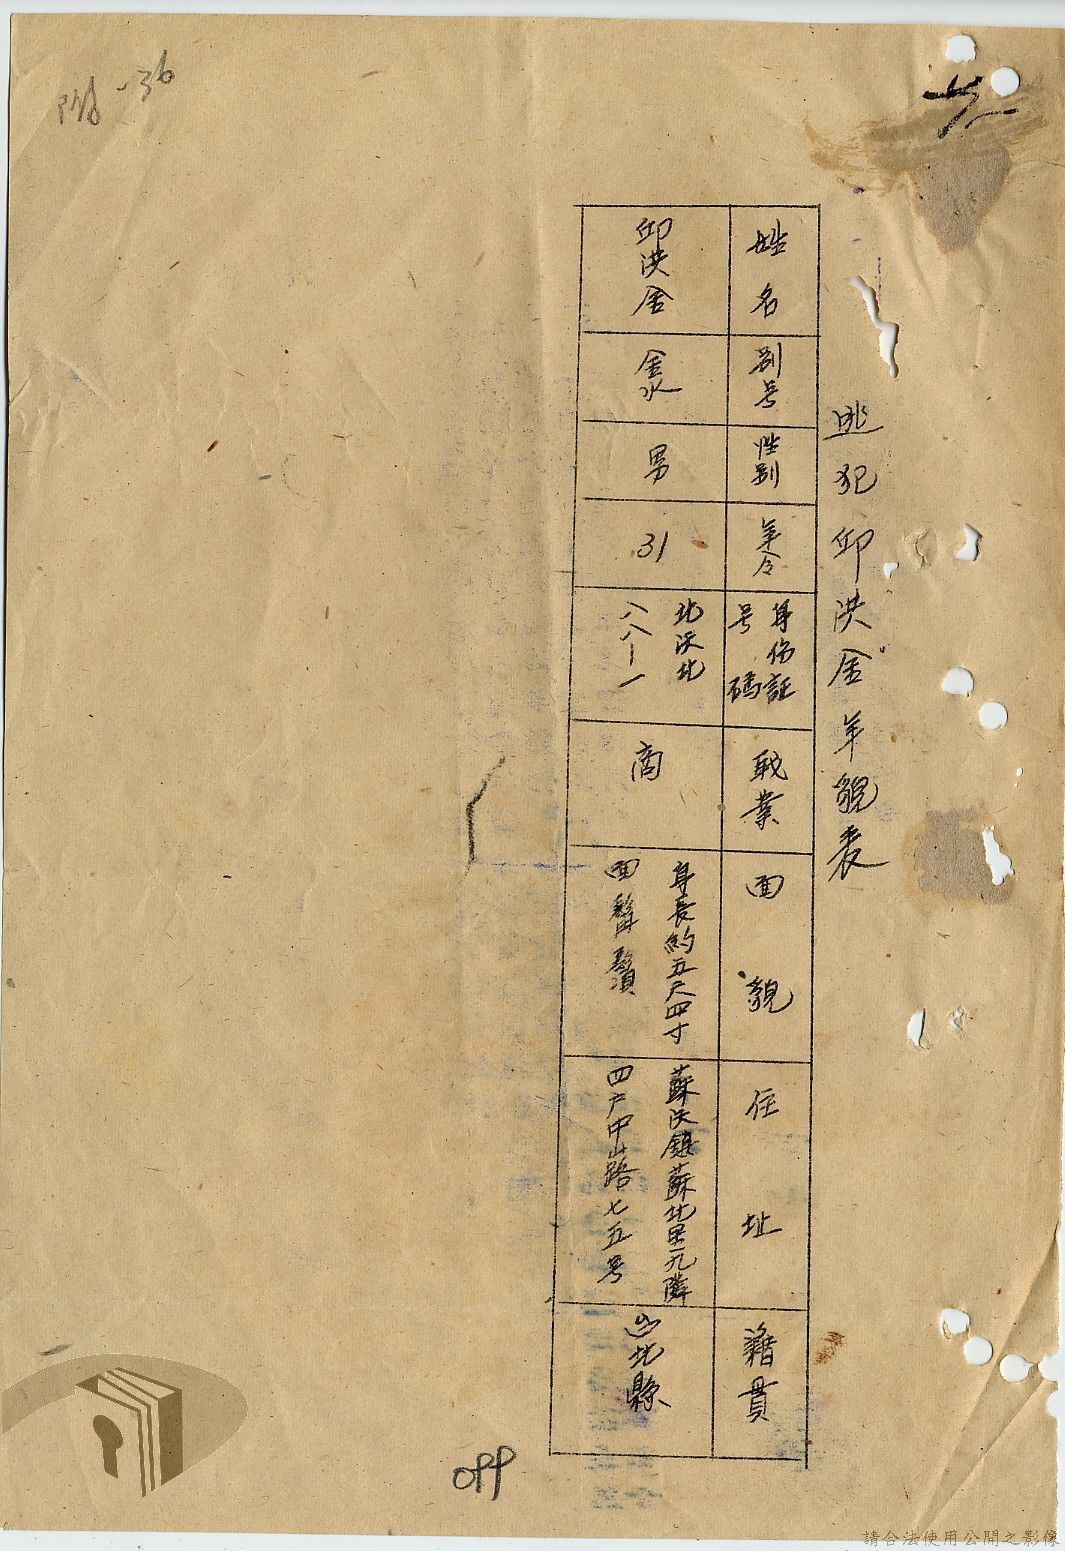 附-36
逃犯邱洪金年貌表
姓名
邱洪金
別号
金水
性別
男
年令
31
身份証
号碼
北沃北
八八一一
職業
商
面貌
身長約五尺四寸
面鬍鬚
住址
蘇沃鎮蘇北里一九隣
四户中山路七五号
籍貫
台北縣
099
請合法使用公開之影像